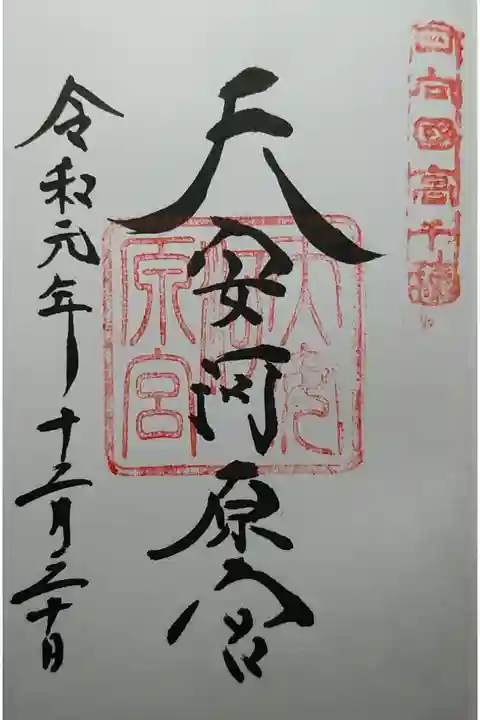 日向國高千穂
天安河原宮
天安河原宮
令和元年十二月三十日